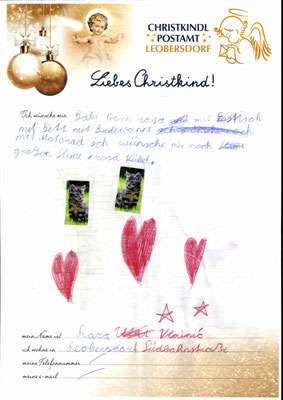 CHRISTKINDL
POSTAMT
LEOBERSDORF
Liebes Christkind!
Ich wünsche mir Babi born rosa mit Esstisch
mit Bett mit Badewanne
mit Motorad ich wünsche mir noch
großen Slime rosa
mein Name ist Lara Vlainić
ich wohne in Leobersdorf Südbahnstraße
meine Telefonnummer
meine e-mail